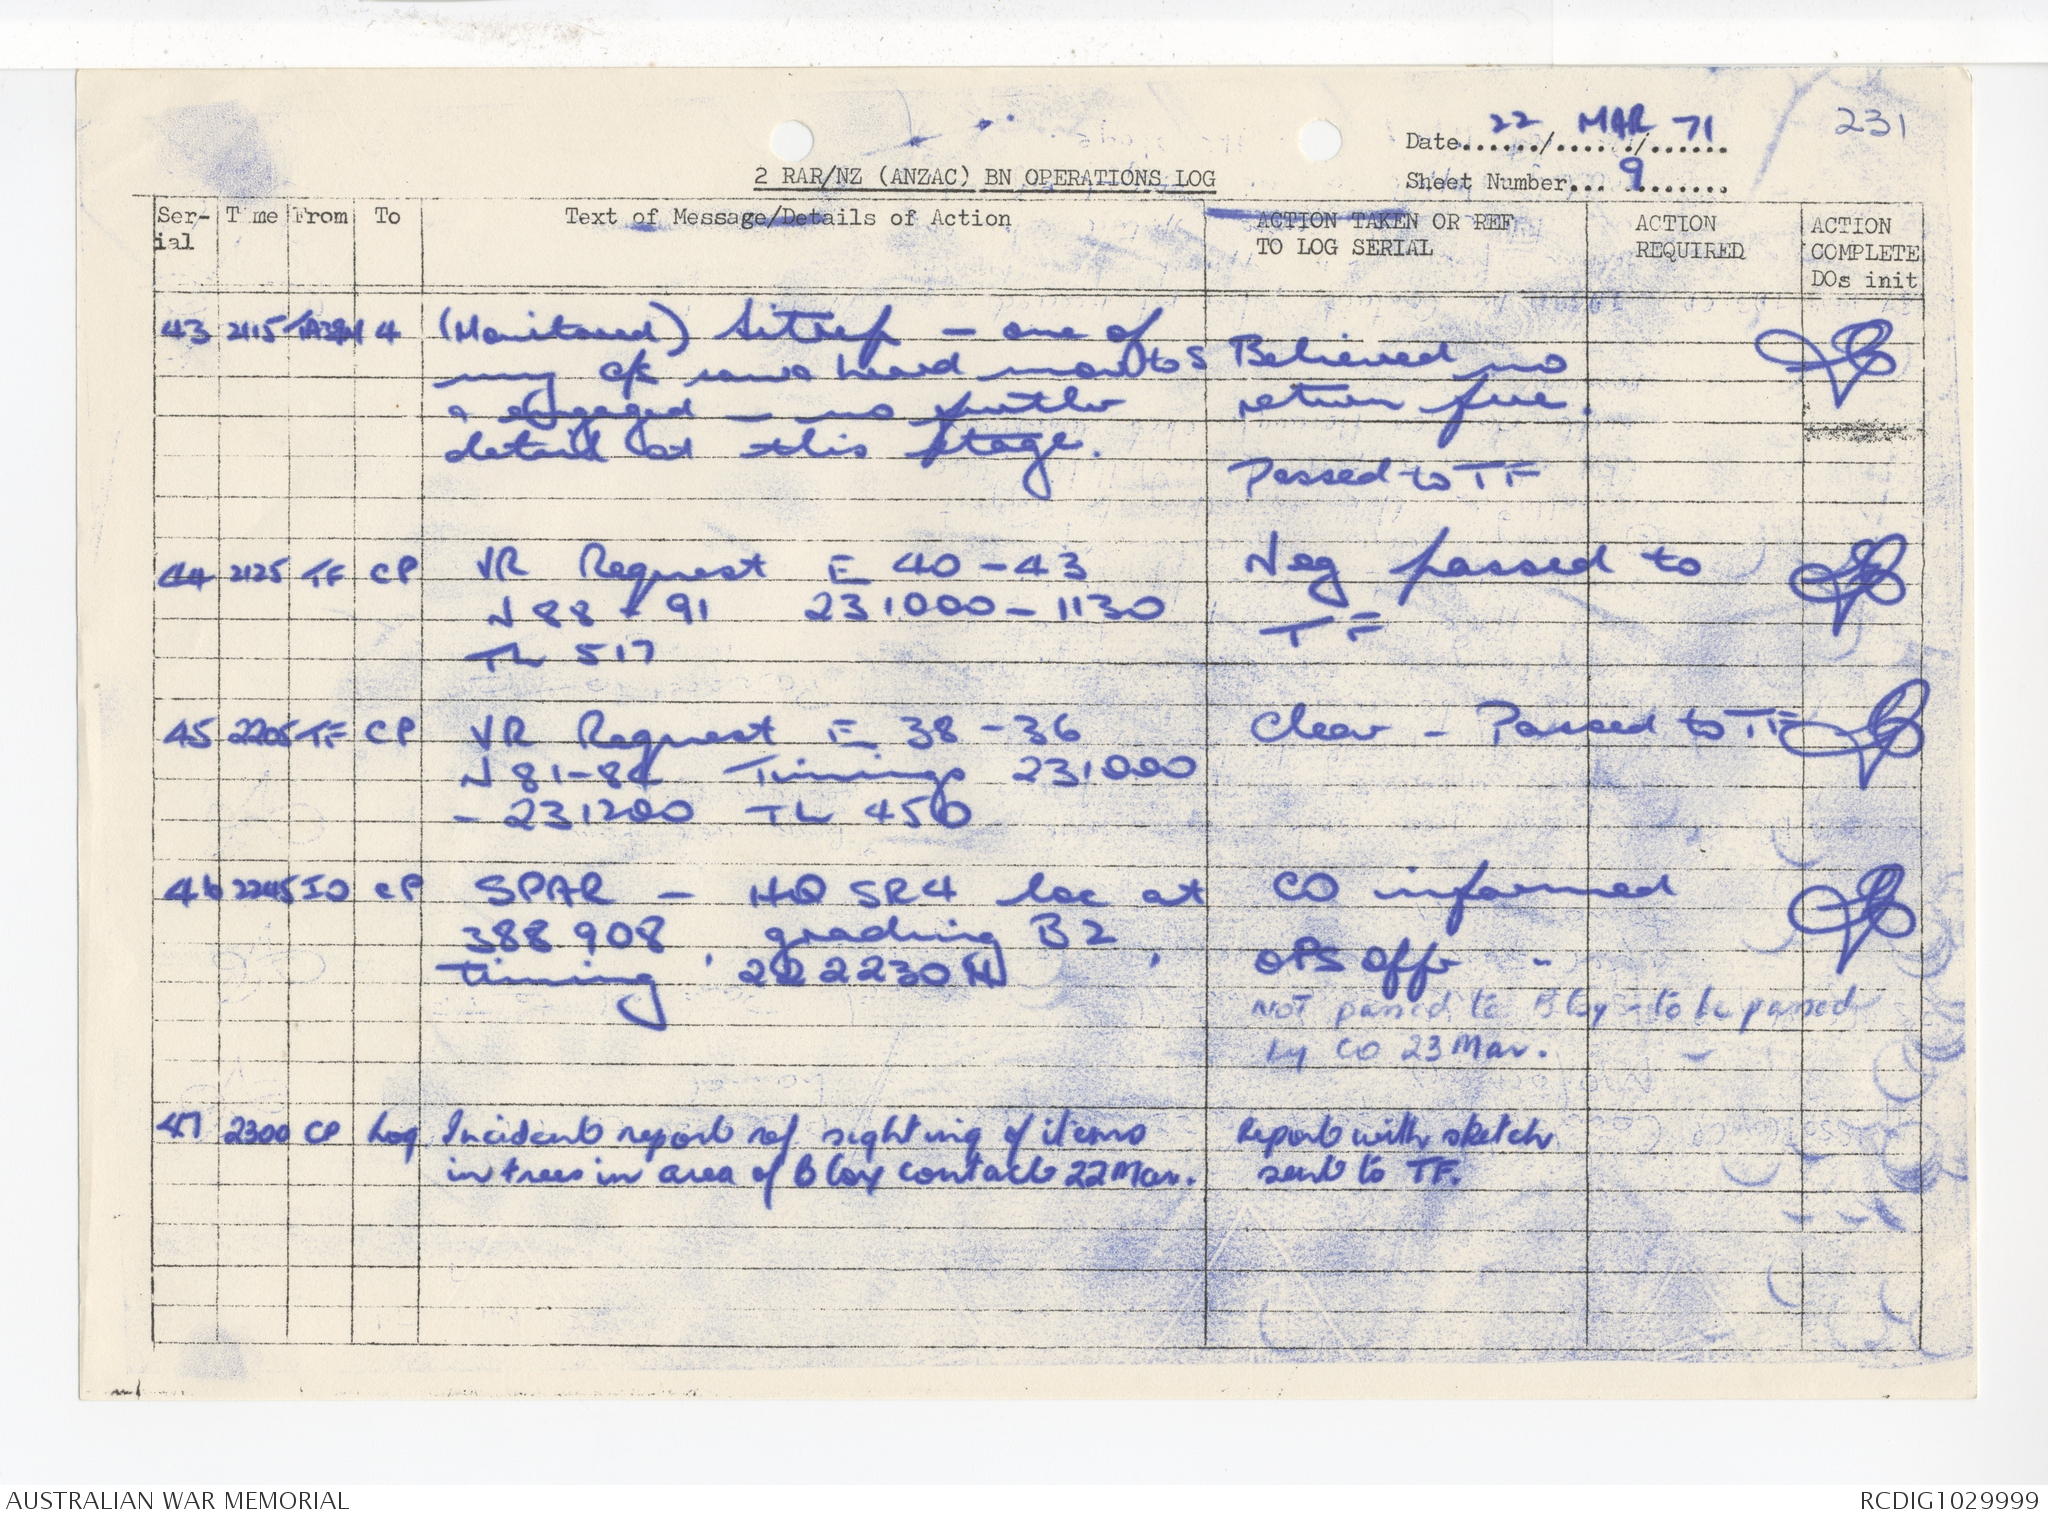 231
Date 22 / MAR / 71
Sheet Number 9
2 RAR/NZ (ANZAC) BN OPERATIONS LOG
Ser-ial Time From To Text of Message/Details of Action ACTION TAKEN OR REF TO LOG SERIAL ACTION REQUIRED ACTION COMPLETE DOs init
43 2115 4 (Monitored) Sitrep - one of
my c/s saw heard movt to S Believed no
& engaged - no further return fire.
detail at this stage.
Passed to TF
44 2125 TF CP VR Request E 40-43 Neg passed to
N 88-91 231000-1130 TF
TL 517
45 2205 TF CP VR Request E 38-36 Clear - Passed to TF
N 81-82 Timings 231000
- 231200 TL 450
46 2245 IO CP SPAR - HQ SR4 loc at CO informed
388908, grading B2, OPS Offr -
timing 222230H
NOT passed to B Coy - to be passed
by CO 23 Mar.
47 2300 CP Log Incident report ref sighting of items Report with sketch
in trees in area of B Coy contact 22 Mar. sent to TF.
AUSTRALIAN WAR MEMORIAL
RCDIG1029999